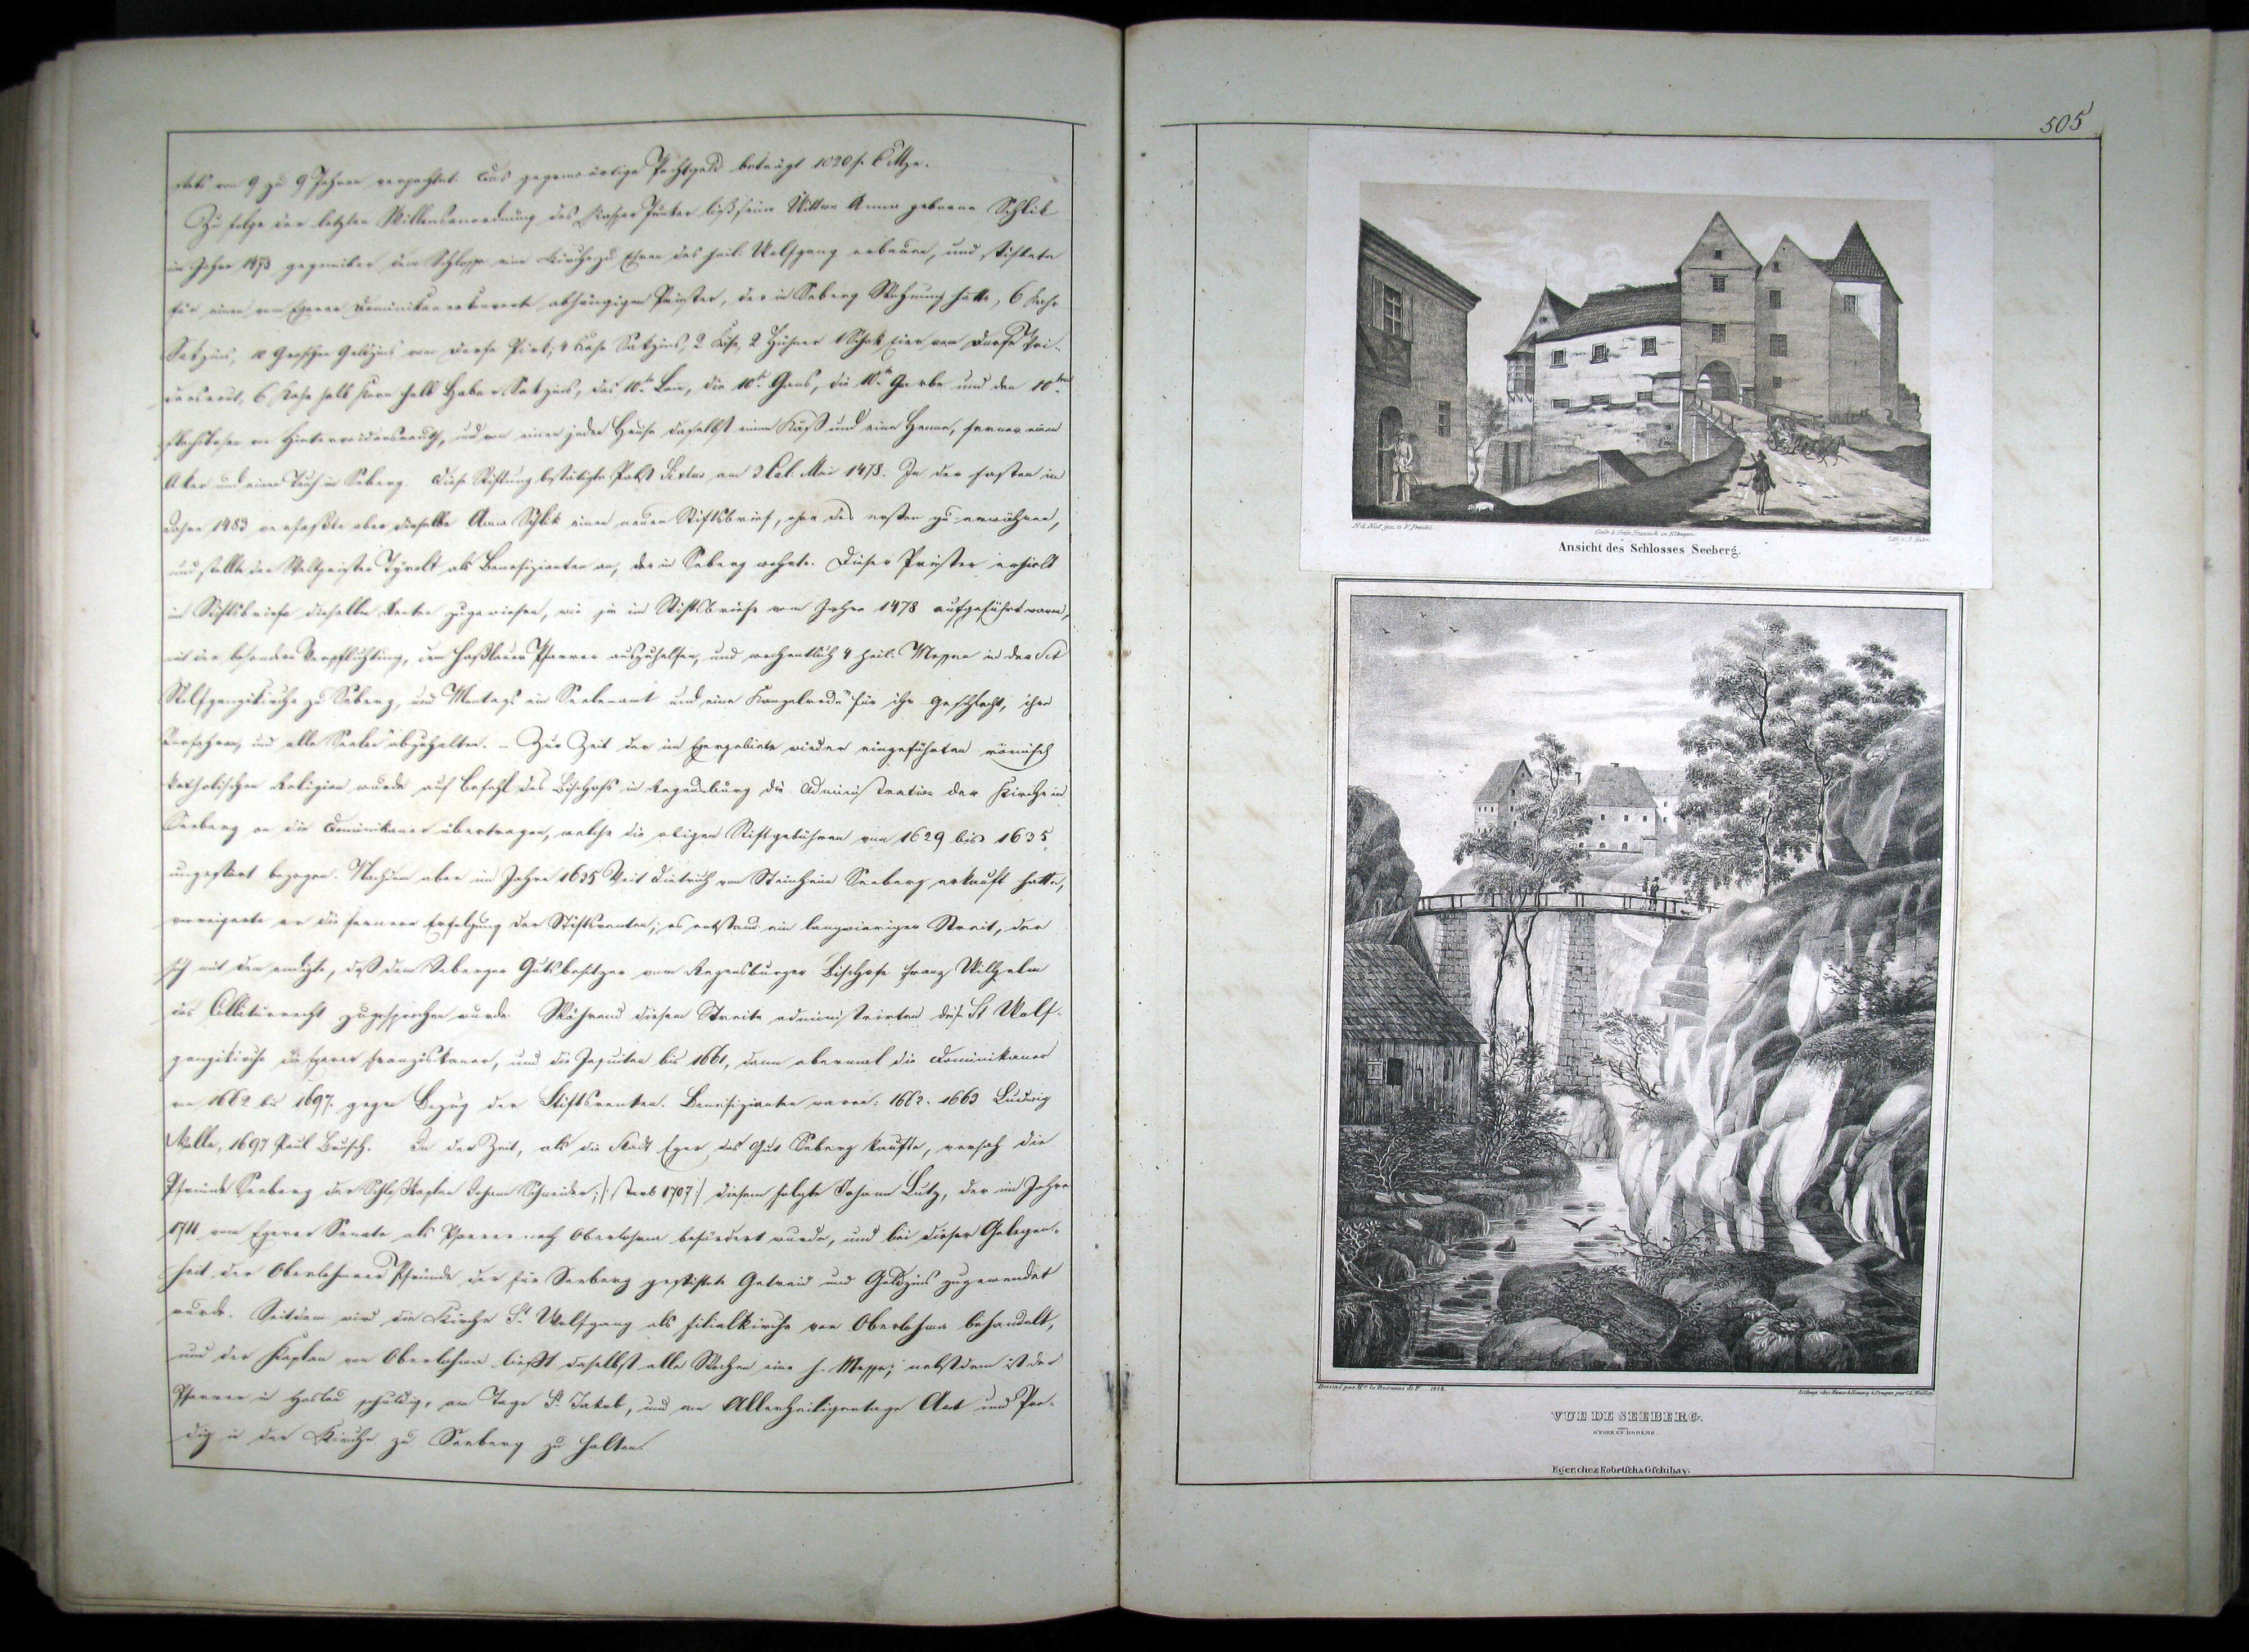 stets von 9 zu 9 Jahren verpachtet. Das gegenwärtige Pachtgeld beträgt 1020 f. C Mze.
Zu folge der letzten Willensanordnung des Kaspar Junker ließ seine Wittwe Anna geborne Schlik
im Jahre 1473 gegenüber dem Schlosse eine Kirche zu Ehren des heil. Wolfgang erbauen, und stiftete
für einen vom Egerer Dominikanerkonvente abhängigen Priester, der in Seberg Wohnung hatte, 6 Kahr
Sakzins, 10 Groschen Geldzins vom Dorfe Pirk; 4 Kahr Sakzins, 2 Käse, 2 Hühner 1 Schok Eier vom Dorfe Trie-
dersreut, 6 Kahr halb Korn halb Haber Sakzins, das 10te Lam, die 10te Gans, die 10te Garbe und den 10ten
von Hinterweidersreuth, und von einem jeden Hause daselbst einen Käß und eine Henne, ferner einen
Aker und einen Teich in Seberg. Diese Stiftung bestätigte Pabst Sixtus am 3 Cal. Mai 1478. In der Fasten im
Jahre 1483 verfaßte aber dieselbe Anna Schlik einen neuen Stiftsbrief, ohne des ersten zu erwähnen,
und stellte den Weltpriester Tyrolt als Benefizianten an, der in Seberg wohnte. Dieser Priester erhielt
im Stiftsbriefe dieselben Renten zugewiesen, wie sie im Stiftsbriefe vom Jahre 1478 aufgeführt waren,
mit der besondern Verpflichtung, dem Haßlauer Pfarrer auszuhelfen, und wochentlich 4 heil. Messen in der Sct
Wolfgangikirche zu Seberg, und Montags ein Seelenamt und eine Kanzelrede "für ihr Geschlecht, ihre
Vorfahren, und alle Seelen" abzuhalten. – Zur Zeit der im Egergebiete wieder eingeführten römisch
katholischen Religion wurde auf Befehl des Bischofs in Regensburg die Administration der Kirche in
Seeberg an die Dominikaner übertragen, welche die obigen Stiftgebühren von 1629 bis 1635,
ungestört bezogen. Nachdem aber im Jahre 1635 Veit Dietrich von Steinheim Seeberg erkauft hatte,
verweigerte er die fernere Erfolgung der Stiftsrenten; es entstand ein langwieriger Streit, der
sich mit dem endigte, daß dem Seberger Gutsbesitzer vom Regensburger Bischofe Franz Wilhelm
das Collaturrecht zugesprochen wurde. Während diesem Streite administrirten diese St Wolf-
gangikirche die Egerer Franziskaner, und die Jesuiten bis 1661, dann abermal die Dominikaner
von 1662 bis 1697. gegen Bezug der Stiftsrenten. Benefizianten waren: 1662. 1663 Ludwig
1697 Paul Brusch. In der Zeit, als die Stadt Eger das Gut Seberg kaufte, versah die
Pfründe Seeberg der Schloßkaplan Johann Schneider; /: starb 1707 :/ diesem folgte Johann Lutz, der im Jahre
1711 vom Egerer Senate als Pfarrer nach Oberlohma befördert wurde, und bei dieser Gelegen-
heit der Oberlohmer Pfründe der für Seeberg gestiftete Getreid und Geldzins zugewendet
wurde. Seitdem wird die Kirche St. Wolfgang als Filialkirche von Oberlohma behandelt,
und der Kaplan von Oberlohma ließt daselbst alle Wochen eine h. Messe; nebstdem ist der
Pfarrer in Haslau schuldig, am Tage St. Jakob, und am Allerheiligentage Amt und Pre-
dig in der Kirche zu Seeberg zu halten.
505
N. d. Nat. gez. v. V. Prechl.
Ansicht des Schlosses Seeberg.
Dessiné par Mme la Baronne de F... 1828.
VUE DE SEEBERG.
PRÈS
D'EGER EN BOHEME.
Eger, chez Kobrtsch & Gschihay.